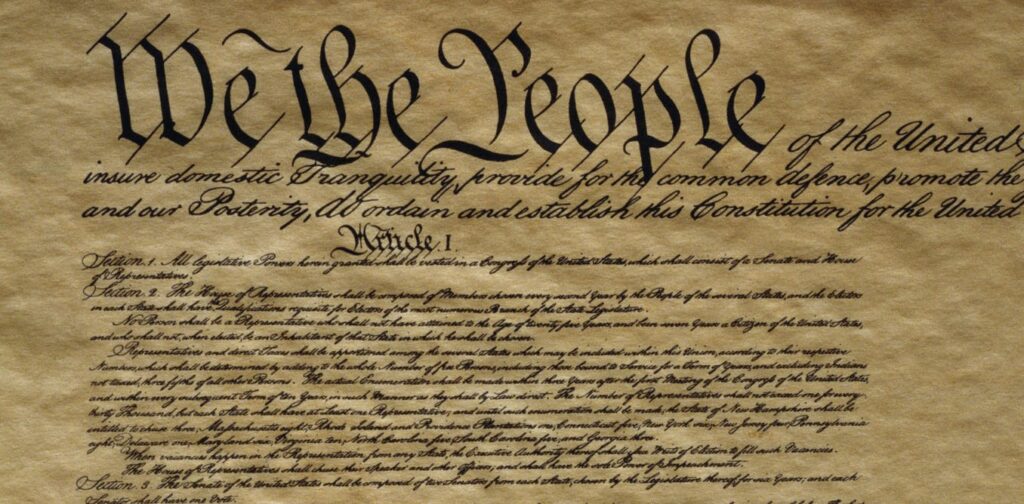 We the People of the United
insure domestic Tranquility, provide for the common defence, promote the
and our Posterity, do ordain and establish this Constitution for the United
Article I.
Section 1. All legislative Powers herein granted shall be vested in a Congress of the United States, which shall consist of a Senate and House
of Representatives.
Section 2. The House of Representatives shall be composed of Members chosen every second Year by the People of the several States, and the Electors
in each State shall have Qualifications requisite for Electors of the most numerous Branch of the State Legislature.
No Person shall be a Representative who shall not have attained to the Age of twenty five Years, and been seven Years a Citizen of the United States,
and who shall not, when elected, be an Inhabitant of that State in which he shall be chosen.
Representatives and direct Taxes shall be apportioned among the several States which may be included within this Union, according to their respective
Numbers, which shall be determined by adding to the whole Number of free Persons, including those bound to Service for a Term of Years, and excluding Indians
not taxed, three fifths of all other Persons. The actual Enumeration shall be made within three Years after the first Meeting of the Congress of the United States,
and within every subsequent Term of ten Years, in such Manner as they shall by Law direct. The Number of Representatives shall not exceed one for every
thirty Thousand, but each State shall have at Least one Representative; and until such enumeration shall be made, the State of New Hampshire shall be
entitled to chuse three, Massachusetts eight, Rhode Island and Providence Plantations one, Connecticut five, New York six, New Jersey four, Pennsylvania
eight, Delaware one, Maryland six, Virginia ten, North Carolina five, South Carolina five, and Georgia three.
When vacancies happen in the Representation from any State, the Executive Authority thereof shall issue Writs of Election to fill such Vacancies.
The House of Representatives shall chuse their Speaker and other Officers; and shall have the sole Power of Impeachment.
Section 3. The Senate of the United States shall be composed of two Senators from each State, chosen by the Legislature thereof, for six Years; and each
Senator shall have one Vote.